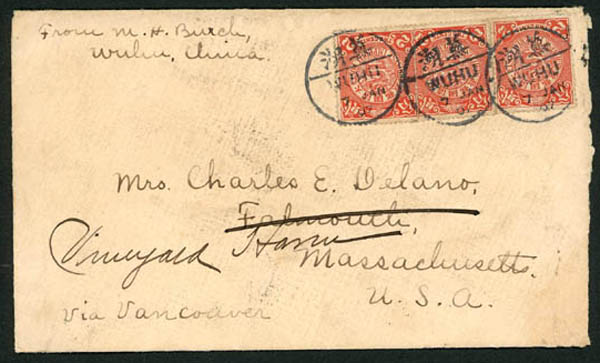 From M. H. Burch,
Wuhu, China.
蕪湖
WUHU
7 JAN
蕪湖
WUHU
7 JAN
蕪湖
WUHU
7 JAN
Mrs. Charles E. Delano,
Falmouth,
Vineyard Haven
Massachusetts.
U. S. A.
Via Vancouver